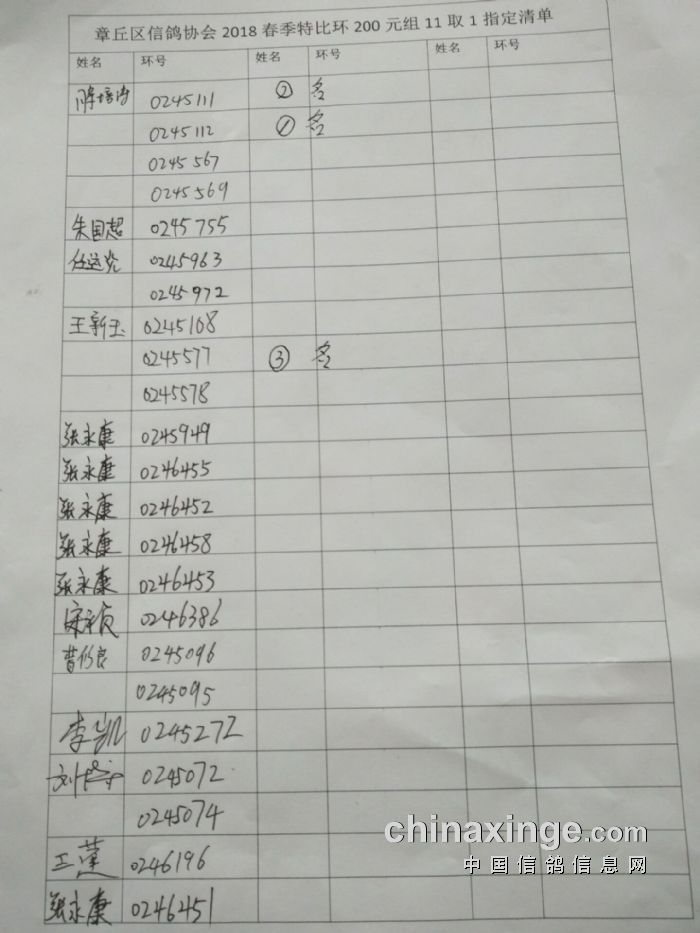 章丘区信鸽协会2018春季特比环200元组11取1指定清单
姓名 环号 姓名 环号 姓名 环号
陈培涛 0245111 ② 名
0245112 ① 名
0245567
0245569
朱国超 0245755
任运光 0245963
0245972
王新玉 0245168
0245577 ③ 名
0245578
张永康 0245949
张永康 0246455
张永康 0246452
张永康 0246458
张永康 0246453
0246386
曹传良 0245096
0245095
李凯 0245272
刘 0245072
0245074
王 0246196
张永康 0246451
chinaxinge.com
中国信鸽信息网